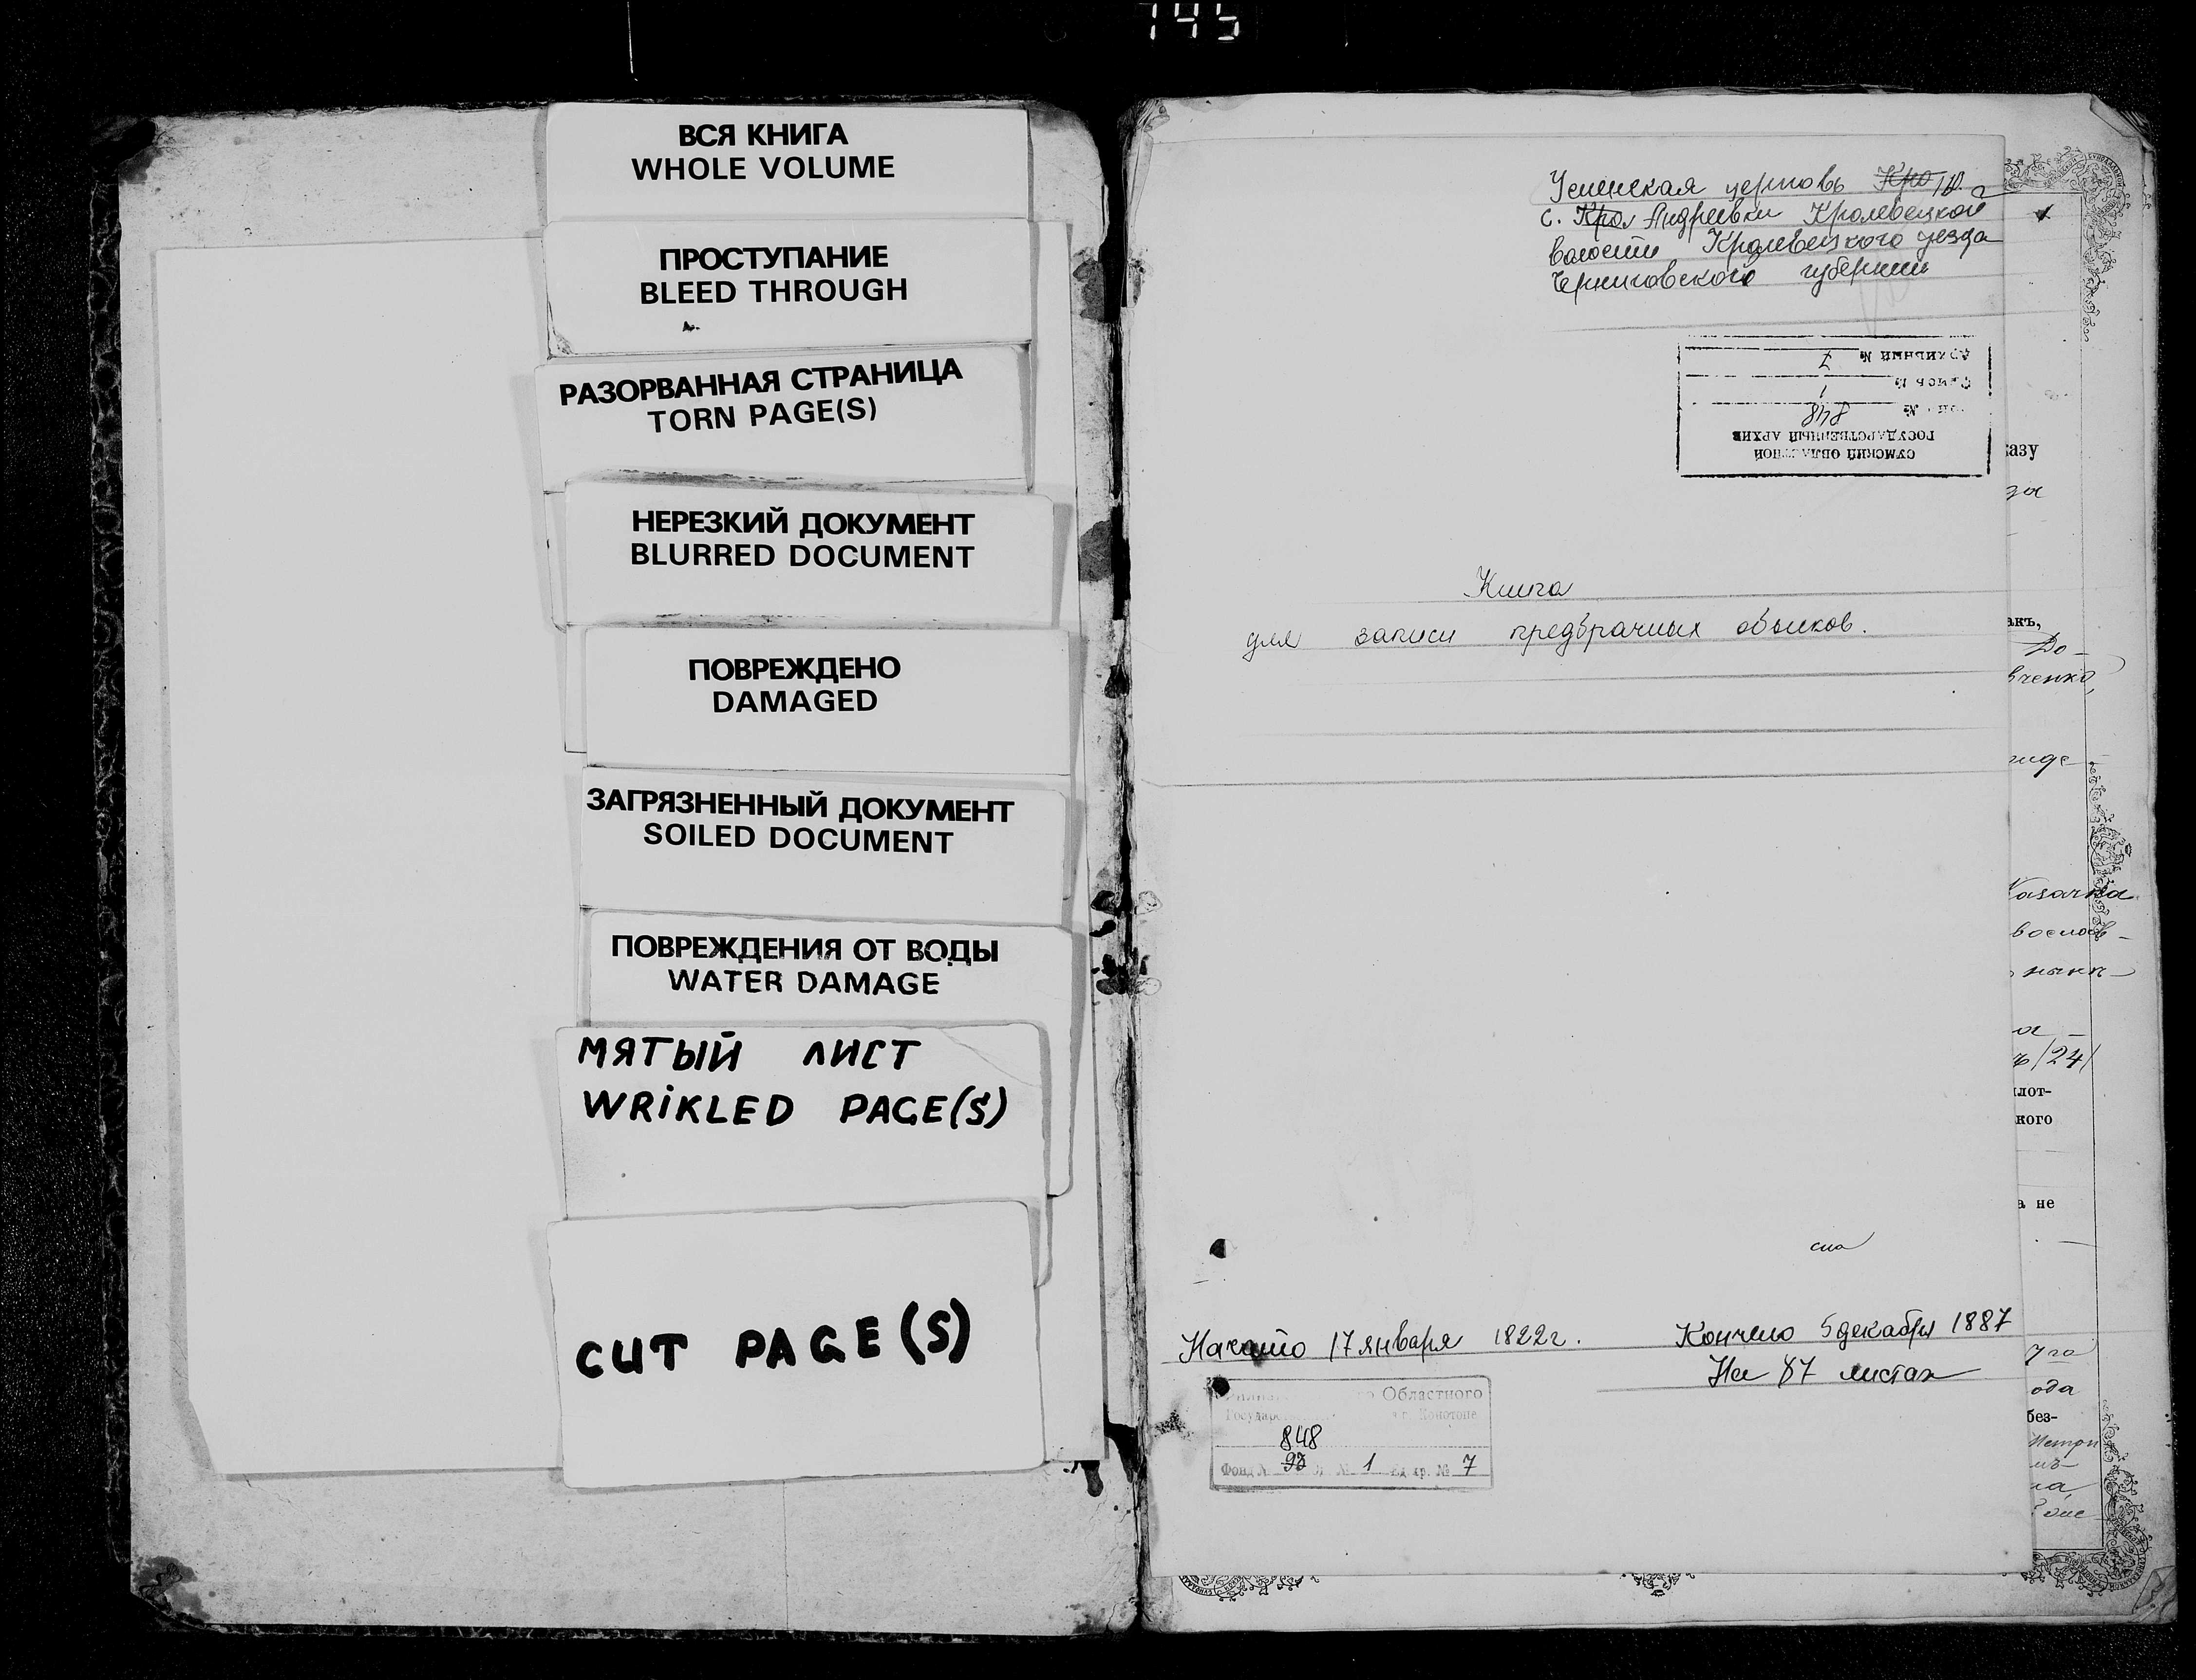 145
ВСЯ КНИГА
WHOLE VOLUME
ПРОСТУПАНИЕ
BLEED THROUGH
РАЗОРВАННАЯ СТРАНИЦА
TORN PAGE(S)
НЕРЕЗКИЙ ДОКУМЕНТ
BLURRED DOCUMENT
ПОВРЕЖДЕНО
DAMAGED
ЗАГРЯЗНЕННЫЙ ДОКУМЕНТ
SOILED DOCUMENT
ПОВРЕЖДЕНИЯ ОТ ВОДЫ
WATER DAMAGE
МЯТЫЙ ЛИСТ
WRIKLED PAGE(S)
CUT PAGE(S)
Успенская церковь Кро
с. Кро Андреевки Кролевецкой
волости Кролевецкого уезда
Черниговского губернии
СУМСКИЙ ОБЛАСТНОЙ
ГОСУДАРСТВЕННЫЙ АРХИВ
№ 848
1
№ 7
Книга
для записи предбрачных обысков.
Начато 17 января 1822г. Кончено 5 декабря 1887
На 87 листах
Областного
г. Конотопе
848
Фонд № 93 № 1 Ед. хр. № 7
казу
акъ,
До-
вченко,
Казачка
/24/
кого
а не
ода
без-